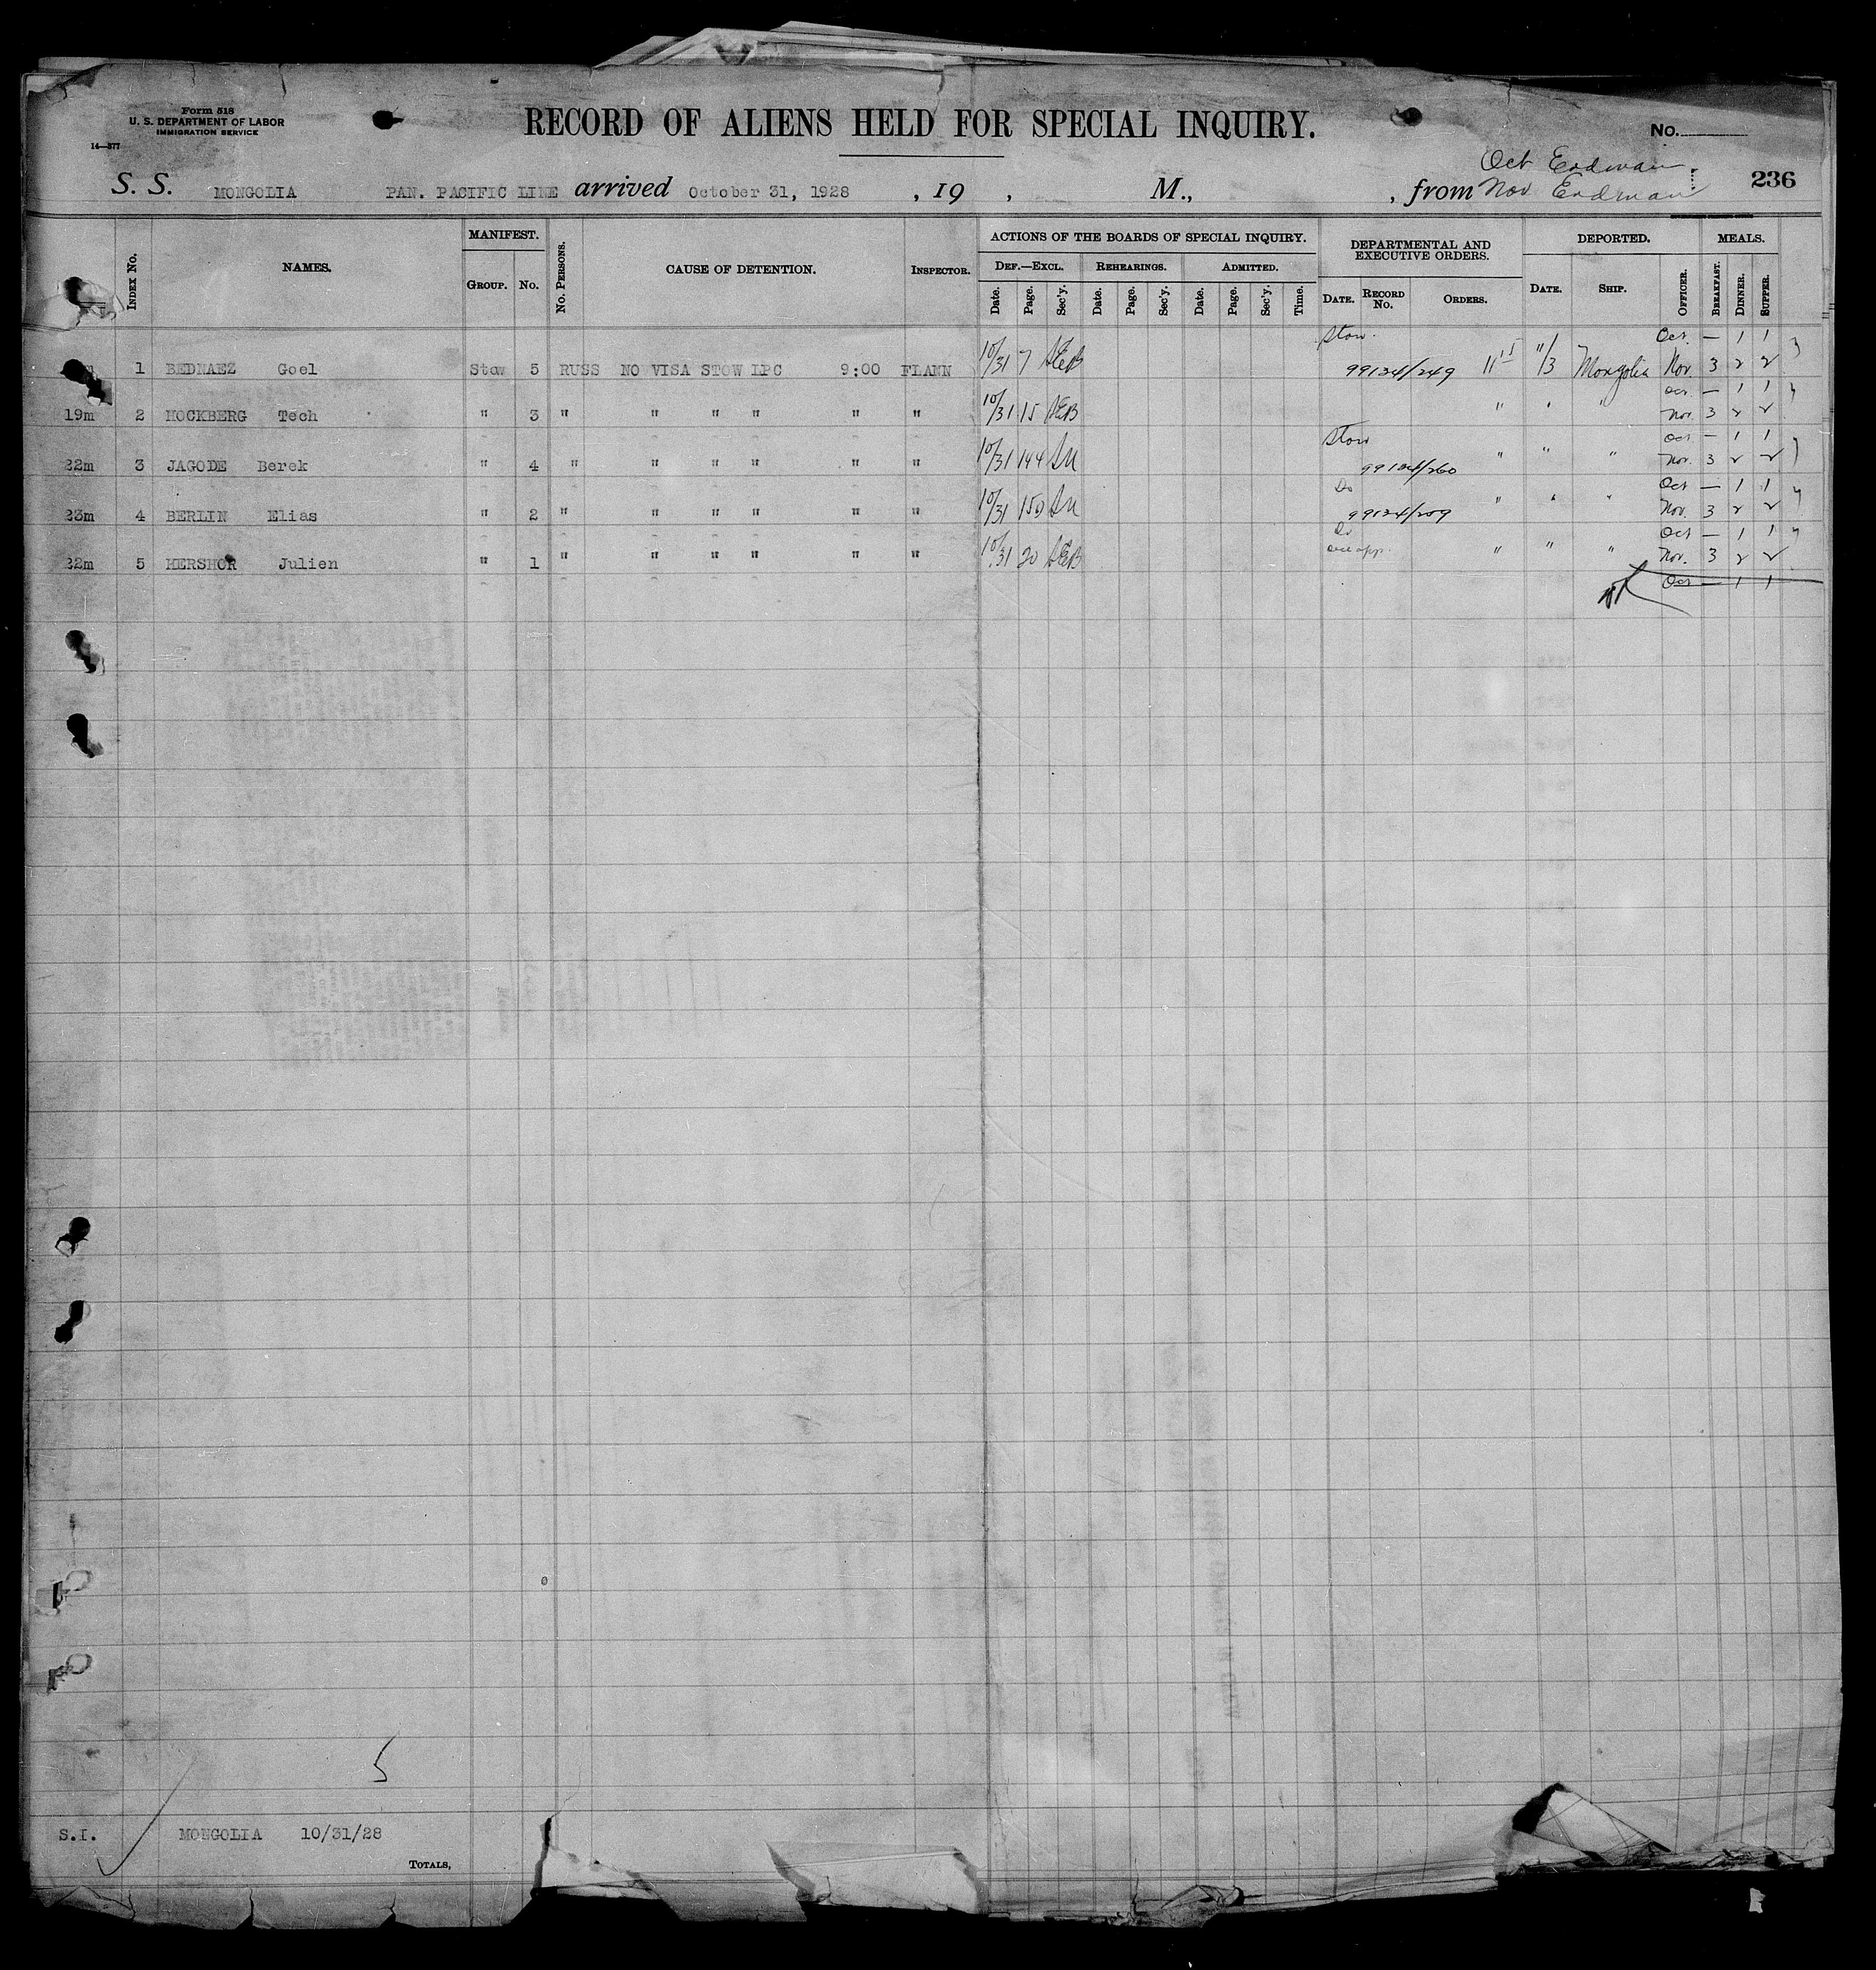 Form 518
U. S. DEPARTMENT OF LABOR
IMMIGRATION SERVICE
14—577
RECORD OF ALIENS HELD FOR SPECIAL INQUIRY.
No.
Oct Erdman
S. S. MONGOLIA PAN. PACIFIC LINE arrived October 31, 1928 , 19 , M., , from Nov. Erdman 236
INDEX No. NAMES. MANIFEST. GROUP. No. No. PERSONS. CAUSE OF DETENTION. INSPECTOR. ACTIONS OF THE BOARDS OF SPECIAL INQUIRY. DEPARTMENTAL AND EXECUTIVE ORDERS. DEPORTED. MEALS.
DEF.—EXCL. REHEARINGS. ADMITTED.
Date. Page. Sec'y. Date. Page. Sec'y. Date. Page. Sec'y. Time. DATE. RECORD No. ORDERS. DATE. SHIP. OFFICER. BREAKFAST. DINNER. SUPPER.
Stow. Oct. — 1 1
1 BEDNAEZ Goel Stow 5 RUSS NO VISA STOW LPC 9:00 FLANN 10/31 7 AEB 99134/249 11/3 Mongolia Nov 3 2 2
Oct. — 1 1
19m 2 HOCKBERG Tech " 3 " " " " " " 10/31 15 AEB " " " Nov. 3 2 2
Stow Oct — 1 1
22m 3 JAGODE Berek " 4 " " " " " " 10/31 144 99134/260 " " " Nov. 3 2 2
Do Oct — 1 1
23m 4 BERLIN Elias " 2 " " " " " " 10/31 150 99134/209 " " " Nov. 3 2 2
Do Oct — 1 1
22m 5 HERSHOR Julien " 1 " " " " " " 10/31 20 AEB " " " Nov. 3 2 2
Oct — 1 1
5
S.I. MONGOLIA 10/31/28
TOTALS,